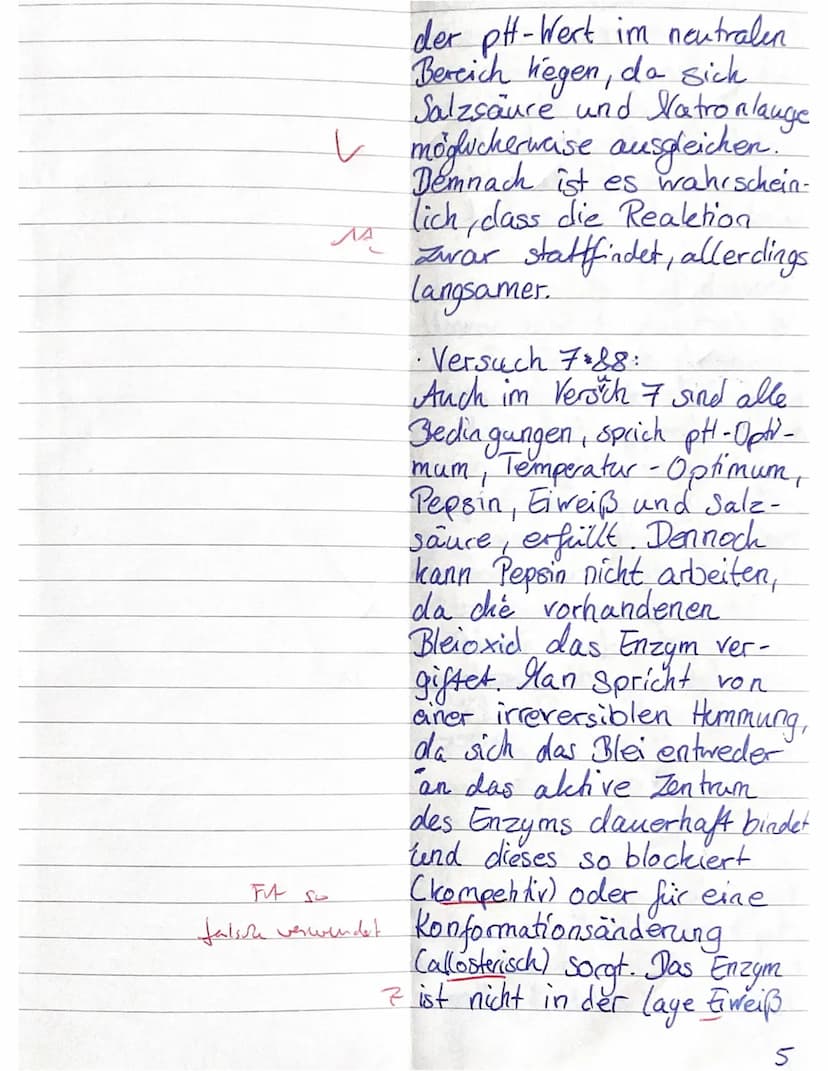 der pH-Wert im neutralen
Bereich liegen, da sich
Salzsäure und Natronlauge
möglicherweise ausgleichen.
Demnach ist es wahrschein-
lich, dass die Reaktion
zwar stattfindet, allerdings
langsamer.
· Versuch 7&8:
Auch im Versuch 7 sind alle
Bedingungen, sprich pH-Opti-
mum, Temperatur-Optimum,
Pepsin, Eiweiß und Salz-
säure, erfüllt. Dennoch
kann Pepsin nicht arbeiten,
da die vorhandenen
Bleioxid das Enzym ver-
giftet. Man spricht von
einer irreversiblen Hemmung,
da sich das Blei entweder
an das aktive Zentrum
des Enzyms dauerhaft bindet
und dieses so blockiert
Ft so
(kompetitiv) oder für eine
falsch verwendet
Konformationsänderung
(allosterisch) sorgt. Das Enzym
Z
ist nicht in der lage Eiweiß
5